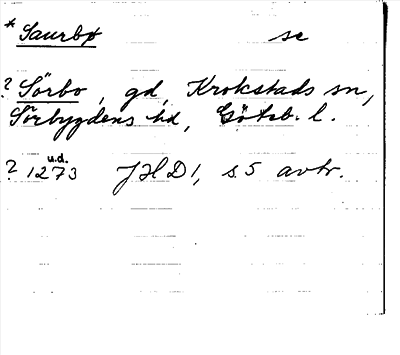 * Saurbø se
? Sörbo, gd, Krokstads sn,
Sörbygdens hd, Göteb. l.
u.d.
? 1273 JHD 1, s. 5 avtr.